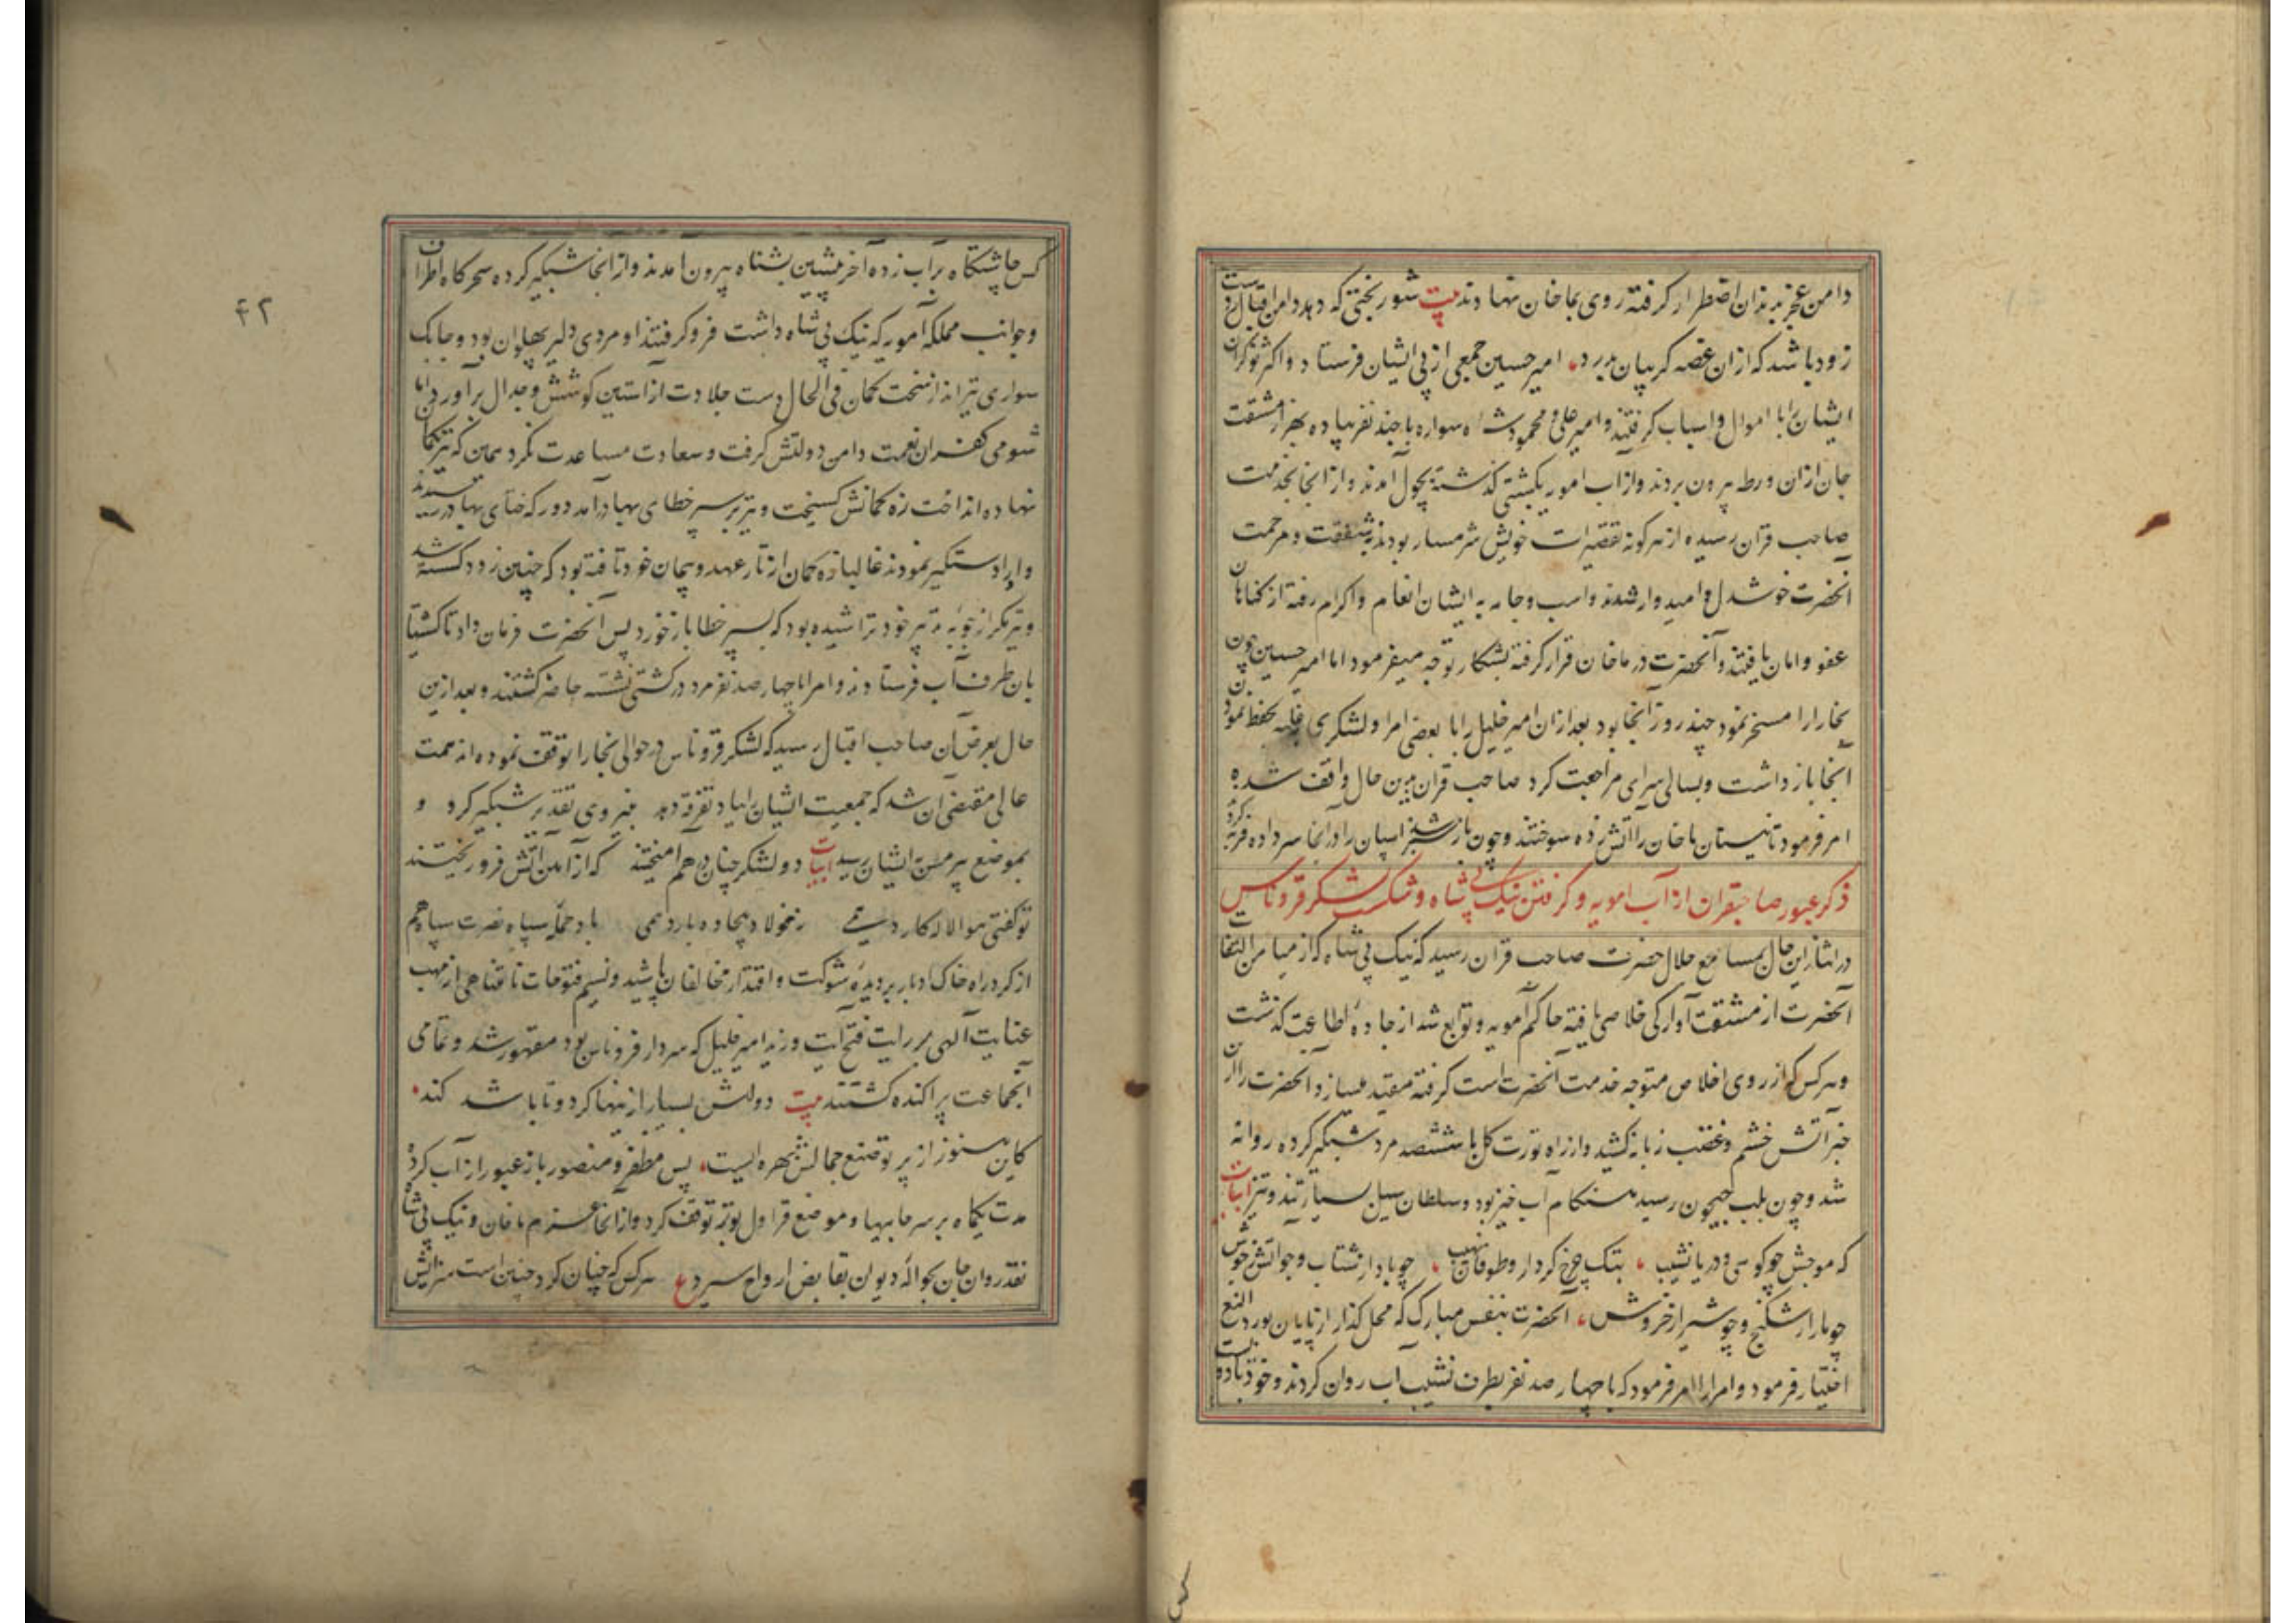 دامن عجز بدندان اضطرار گرفته روی بماخان نهادند بیت شوربختی که دهد دامن اقبال ز دست
زود باشد که ازان غصه گریبان بدرد امیر حسین جمعی از پی ایشان فرستاد و اکثر نوکران
ایشان را با اموال و اسباب گرفتند و امیر علی و محمود شاه سواره با چند نفر پیاده بهزار مشقت
جان ازان ورطه بیرون بردند و از آب امویه بکشتی گذشته بچول آمدند و از انجا بخدمت
صاحب قران رسیده از هر گونه تقصیرات خویش شرمسار بودند بشفقت و مرحمت
آنحضرت خوشدل و امیدوار شدند و اسب و جامه به ایشان انعام و اکرام رفته از کناهان
عفو و امان یافتند و آنحضرت در ماخان قرار گرفته بشکار توجه میفرمود اما امیر حسین چون
بخارا را مسخر نمود چند روز آنجا بود بعد ازان امیر خلیل را با بعضی امرا و لشکری بحفظ نمودن
آنجا بازداشت و بسالی سرای مراجعت کرد صاحب قران برین حال واقف شده
امر فرمود تا نیستان ماخان را آتش زده سوختند و چون باز سبز شد اسپان را در انجا سر داده فربه کرد
ذکر عبور صاحبقران از آب امویه و گرفتن نیک پی شاه و شکست لشکر قروناس
در اثنای این حال بمسامع جلال حضرت صاحب قران رسید که نیک پی شاه که از میامن التفات
آنحضرت از مشقت آوارگی خلاصی یافته حاکم آمویه و توابع شد از جاده اطاعت گذشت
و هر کس که از روی اخلاص متوجه خدمت آنحضرت است گرفته مقید میسازد آنحضرت را از آن
خبر آتش خشم و غضب زبانه کشید و از راه تورت کل با ششصد مرد شبگیر کرده روانه
شد و چون بلب جیحون رسید هنگام آب خیز بود و سلطان سیل بسیار تند و تیز ابیات
که موجش چو کوسی و دریا نشیب بتک چرخ کردار و طوفان نهیب چو باد از شتاب و چو آتش ز جوش
چو مار از شکنج و چو شیر از خروش آنحضرت بنفس مبارک که محل گذار از پایان بوردالنع
اختیار فرمود و امرا را امر فرمود که با چهار صد نفر بطرف نشیب آب روان کردند و خود با دویست
۴۲
کس چاشتگاه بر آب زده آخر پیشین بشناه بیرون آمدند و از انجا شبگیر کرده سحرگاه اطراف
و جوانب مملکه آمویه که نیک پی شاه داشت فرو گرفتند او مردی دلیر پهلوان بود و چابک
سواری تیر انداز سخت کمان فی الحال دست جلادت از استین کوشش و جدال برآورد اما
شومی کفران نعمت دامن دولتش گرفت و سعادت مساعدت نکرد همین که تیر بکمان
نهاده انداخت زه کمانش گسیخت و تیر بر سر خطای بهادر آمد دورکه ختای بهادر رسیدند
و او را دستگیر نمودند غالبا زه کمان از تار عهد و پیمان خود تافته بود که چنین زود گسسته شد
و تیر مگر از چوبه تدبیر خود تراشیده بود که بسر خطا باز خورد پس آنحضرت فرمان داد تا کشتیها
بان طرف آب فرستادند و امرا با چهار صد نفر مرد در کشتی نشسته حاضر گشتند و بعد ازین
حال بعرض آن صاحب اقبال رسید که لشکر قروناس در حوالی بخارا توقف نموده اند همت
عالی مقتضی آن شد که جمعیت ایشان را بباد تفرقه دهد بنیروی تقدیر شبگیر کرد و
بموضع پیرمسن ایشان رسید ابیات دو لشکر چنان درهم امیختند که از آهن آتش فرو ریختند
تو گفتی هوا لاله کارد همی ز فولاد بیجاده بارد همی باد حمله سپاه نصرت سپاهم
از گرد راه خاک ادبار بر دیده شوکت و اقتدار مخالفان پاشید و نسیم فتوحات نامتناهی از مهب
عنایت آلهی بر رایت فتح آیت وزید امیر خلیل که سردار قروناس بود مقهور شد و تمامی
آنجماعت پراکنده گشتند بیت دولتش بسیار ازینها کرد و تا باشد کند
کاین هنوز از پرتو صنع جمالش بهره ایست پس مظفر و منصور باز عبور از آب کرده
مدت یکماه بر سر چاهها و موضع قراول بوته توقف کرد و از انجا عزم ماخان و نیک پی شاه
نقد روان جان بحواله دیوان بقابض ارواح سپرد ع هر کس که چنان کرد چنین است سزایش